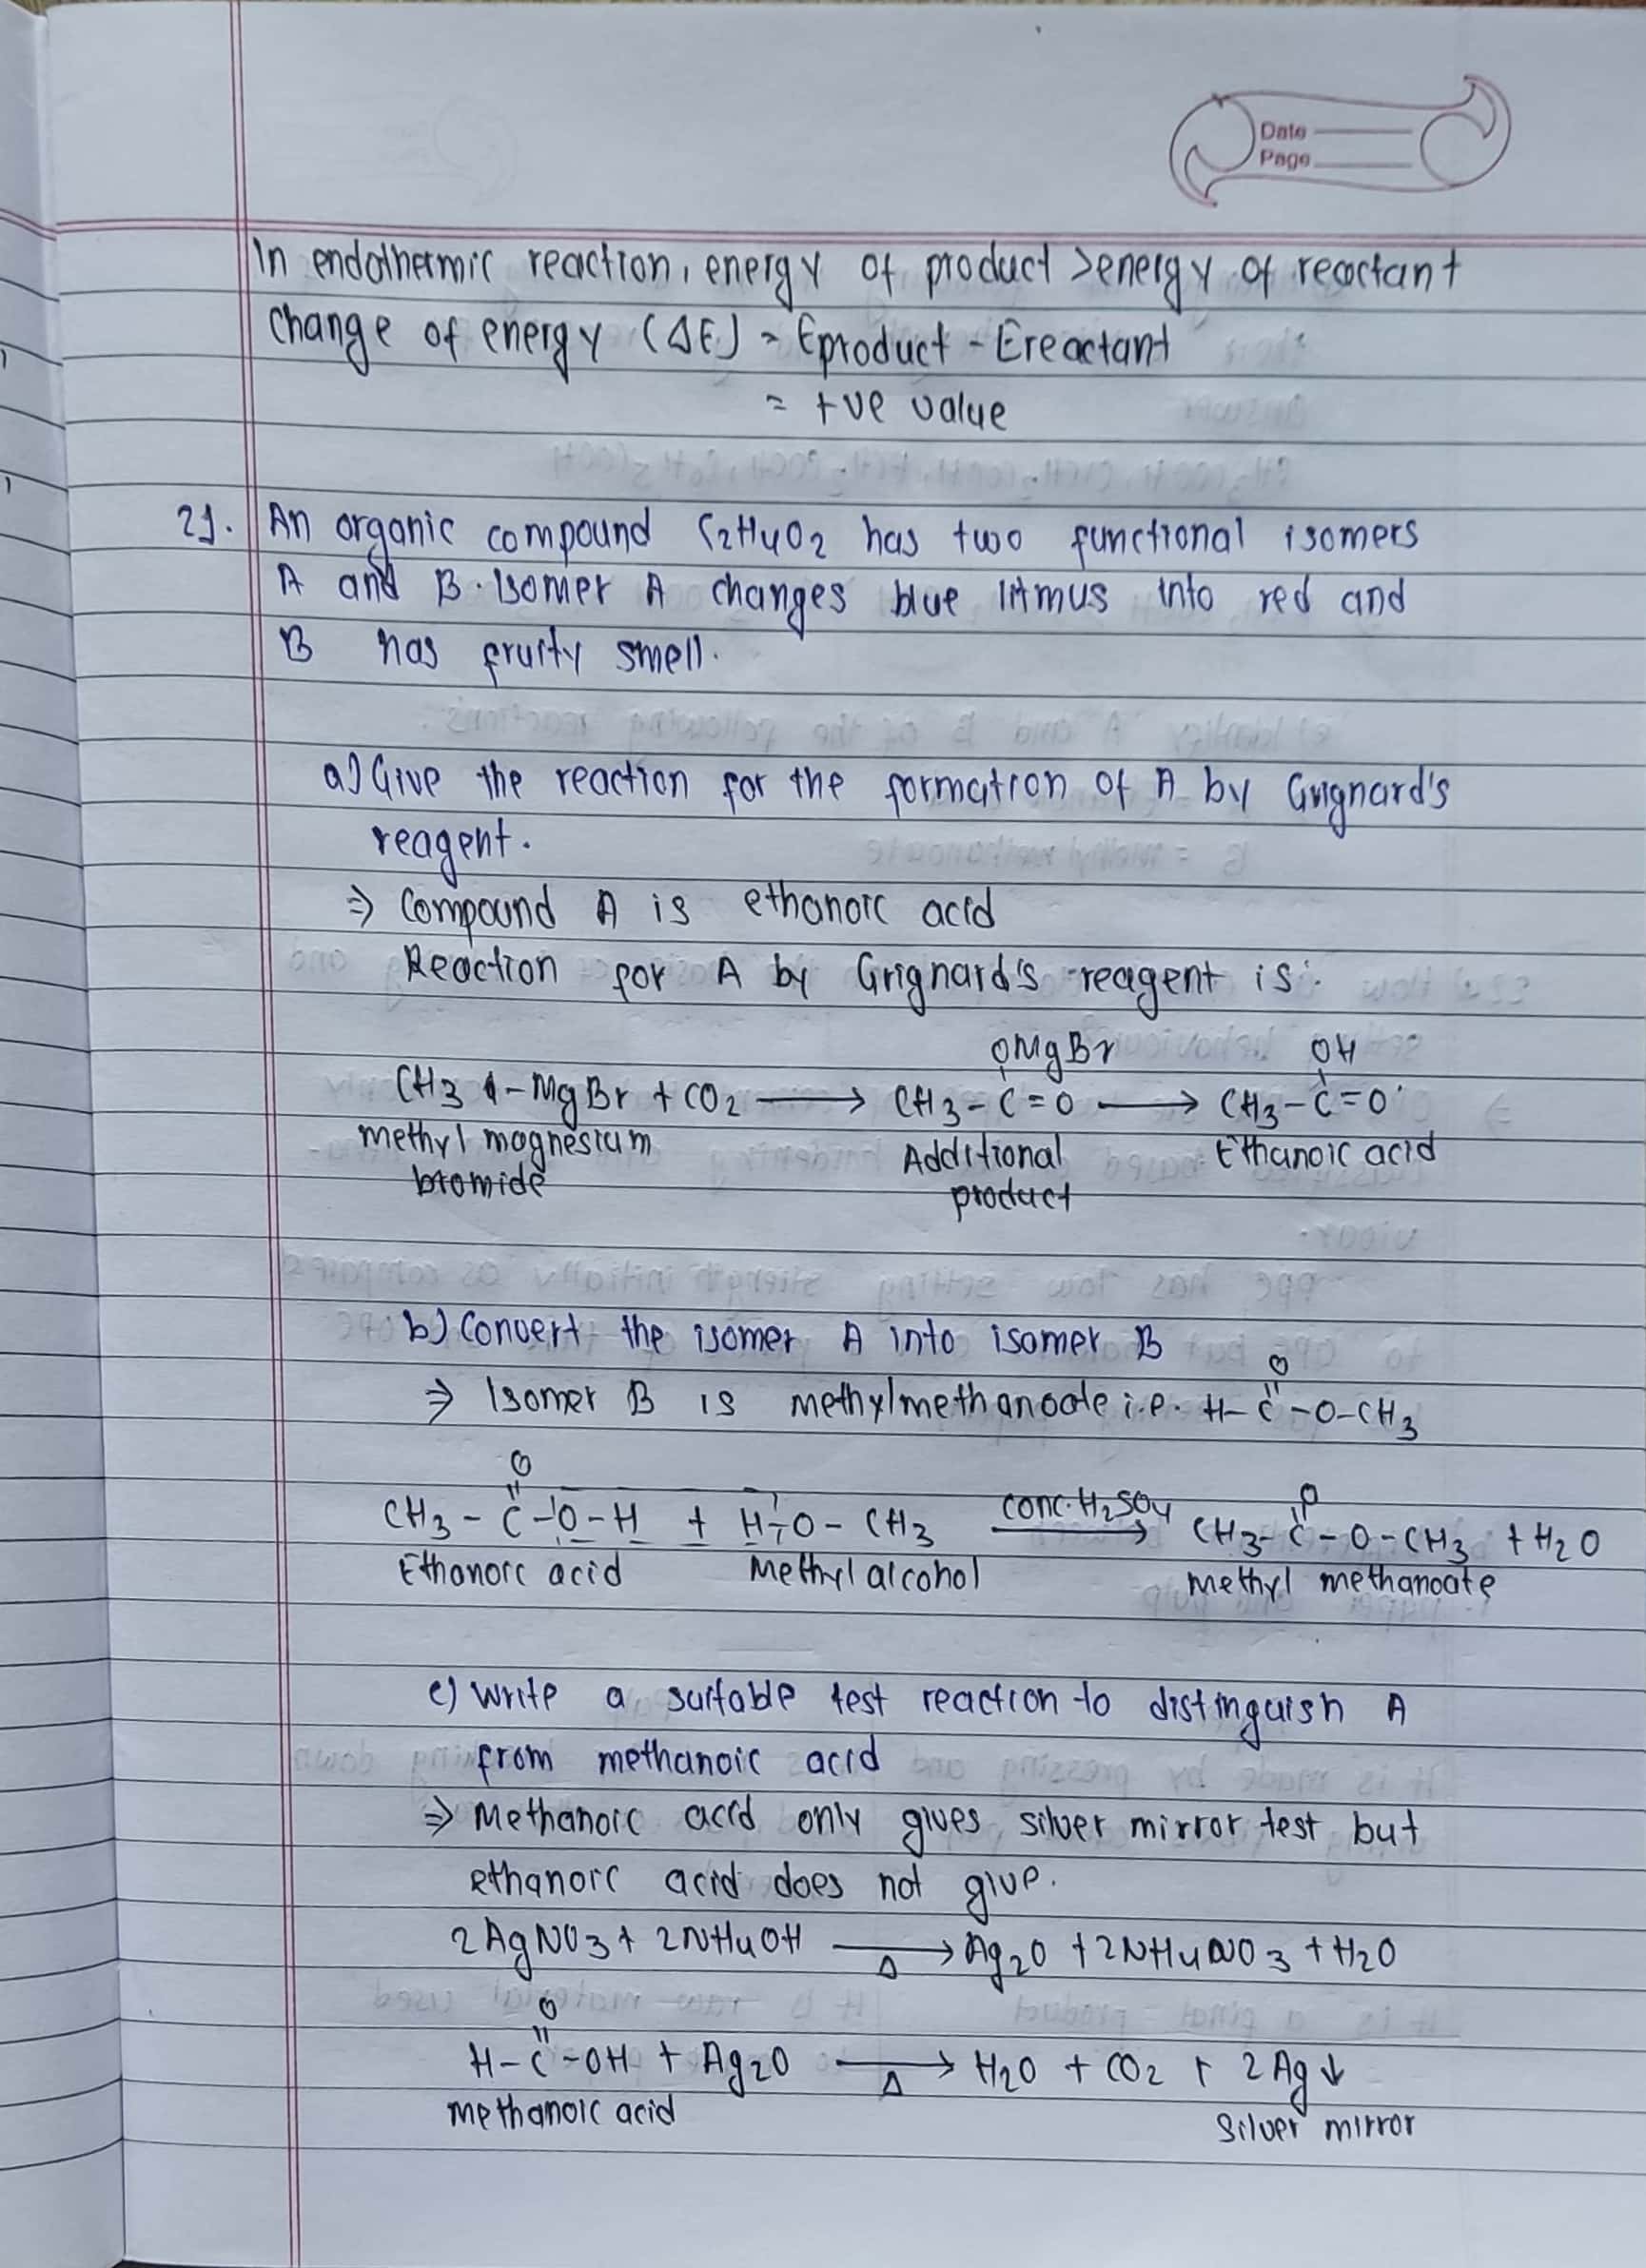 Date
Page
In endothermic reaction, energy of product > energy of reactant
Change of energy (ΔE) = Eproduct - Ereactant
= +ve value
21. An organic compound C2H4O2 has two functional isomers
A and B. Isomer A changes blue litmus into red and
B has fruity smell.
a) Give the reaction for the formation of A by Grignard's
reagent.
⇒ Compound A is ethanoic acid
Reaction for A by Grignard's reagent is:
OMgBr OH
CH3 - MgBr + CO2 ⟶ CH3 - C = O ⟶ CH3 - C = O
methyl magnesium Additional Ethanoic acid
bromide product
b) Convert the isomer A into isomer B
O
⇒ Isomer B is methylmethanoate i.e. H - C - O - CH3
O O
CH3 - C - O - H + H - O - CH3 conc. H2SO4 ⟶ CH3 - C - O - CH3 + H2O
Ethanoic acid Methyl alcohol methyl methanoate
c) Write a suitable test reaction to distinguish A
from methanoic acid
⇒ Methanoic acid only gives silver mirror test but
ethanoic acid does not give.
2AgNO3 + 2NH4OH ⟶ Δ Ag2O + 2NH4NO3 + H2O
O
H - C - OH + Ag2O ⟶ Δ H2O + CO2 + 2Ag↓
methanoic acid Silver mirror